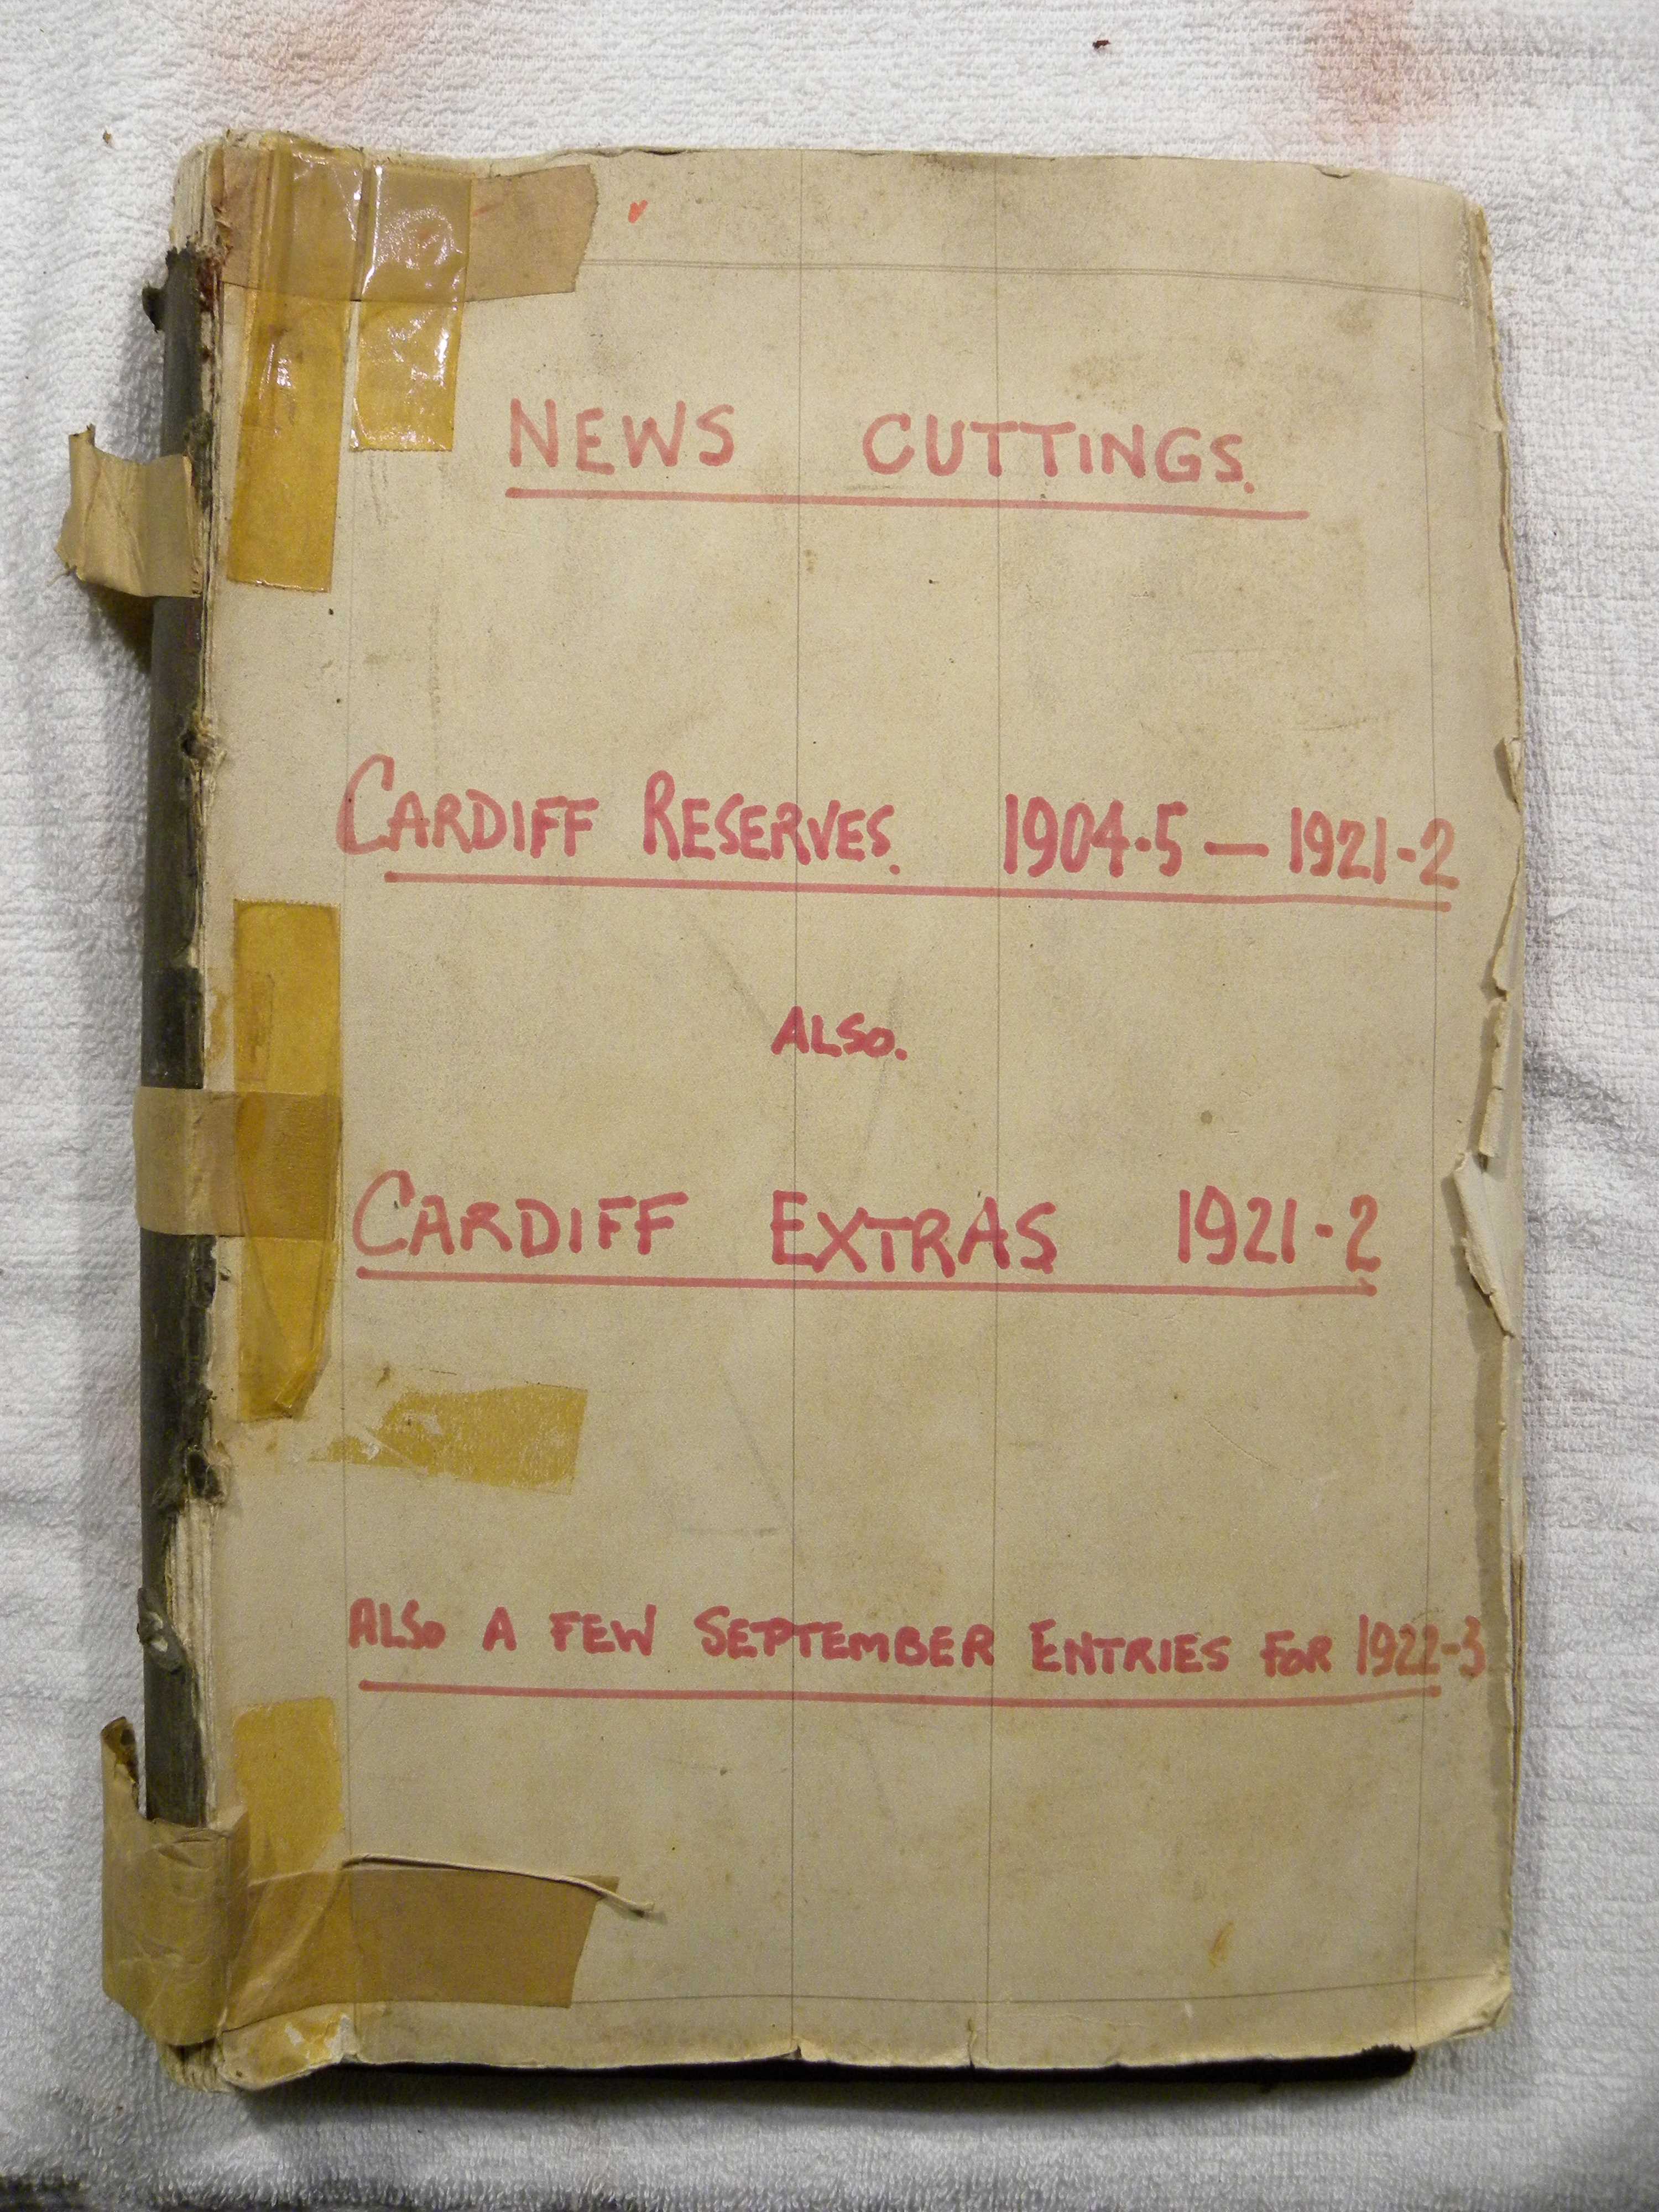 NEWS CUTTINGS.
CARDIFF RESERVES. 1904-5 — 1921-2
ALSO.
CARDIFF EXTRAS 1921-2
ALSO A FEW SEPTEMBER ENTRIES FOR 1922-3